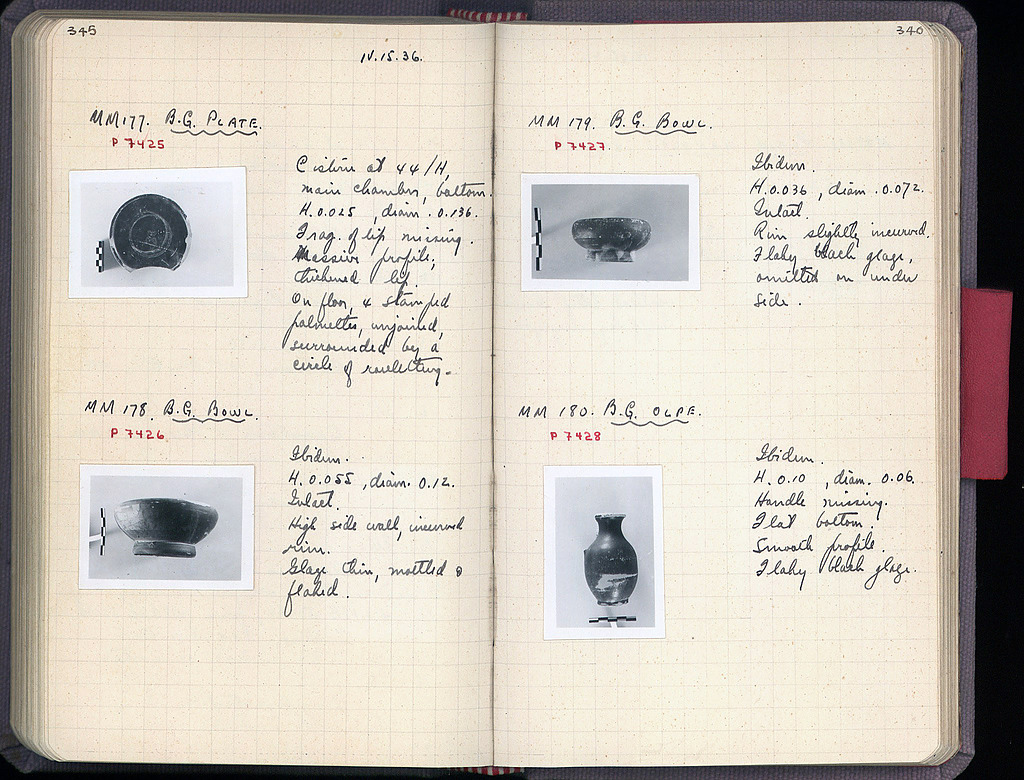 345
IV.15.36.
MM177. B.G. PLATE.
P 7425
Cistern at 44/H,
main chamber, bottom.
H. 0.025 , diam. 0.136.
Frag. of lip missing.
Massive profile;
thickened lip.
On floor, 4 stamped
palmettes, unjoined,
surrounded by a
circle of rouletting.
MM 178. B.G. BOWL.
P 7426
Ibidem.
H. 0.055 , diam. 0.12.
Intact.
High side wall, incurved
rim.
Glaze thin, mottled &
flaked.
340
MM 179. B.G. BOWL.
P 7427
Ibidem.
H. 0.036 , diam. 0.072.
Intact.
Rim slightly incurved.
Flaky black glaze,
omitted on under
side.
MM 180. B.G. OLPE.
P 7428
Ibidem.
H. 0.10 , diam. 0.06.
Handle missing.
Flat bottom.
Smooth profile.
Flaky black glaze.